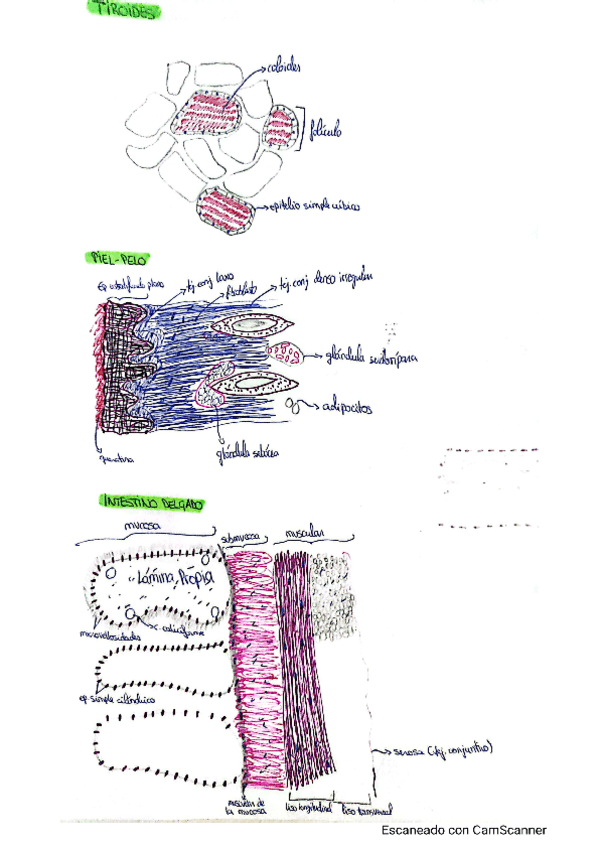 TIROIDES
coloides
folículo
epitelio simple cúbico
PIEL-PELO
Ep estratificado plano
tej. conj laxo
fibroblasto
tej. conj denso irregular
glándula sudorípara
adipocitos
queratina
glándula sebácea
INTESTINO DELGADO
mucosa
submucosa
muscular
Lámina Própia
c. caliciforme
microvellosidades
ep simple cilíndrico
serosa (tej. conjuntivo)
muscular de
la mucosa
liso longitudinal
liso transversal
Escaneado con CamScanner